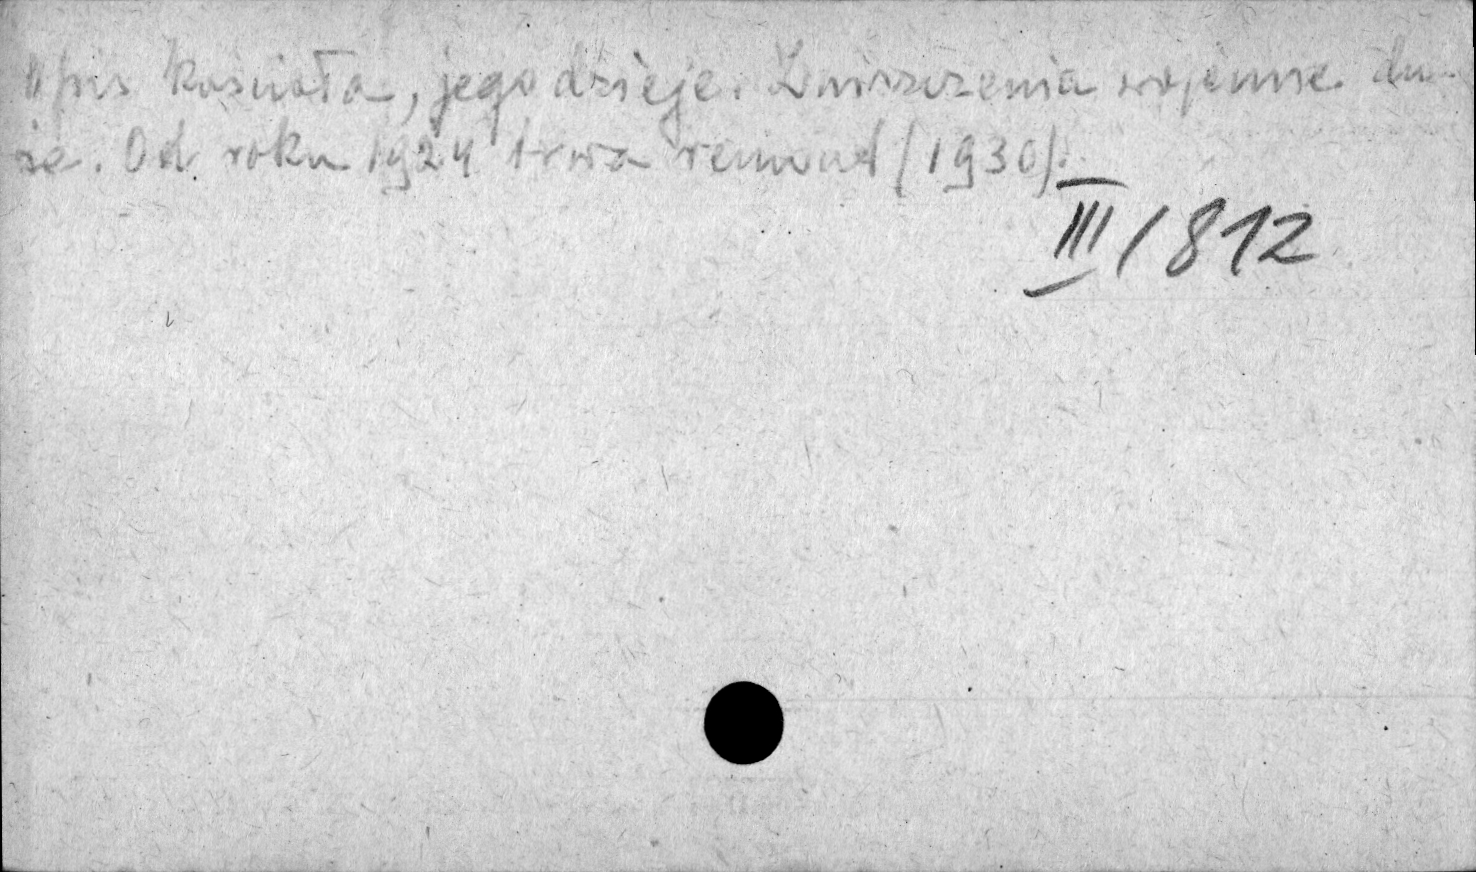 Opis kościoła, jego dzieje. Zniszczenia wojenne du-
że. Od roku 1924 trwa remont (1930).
III/812